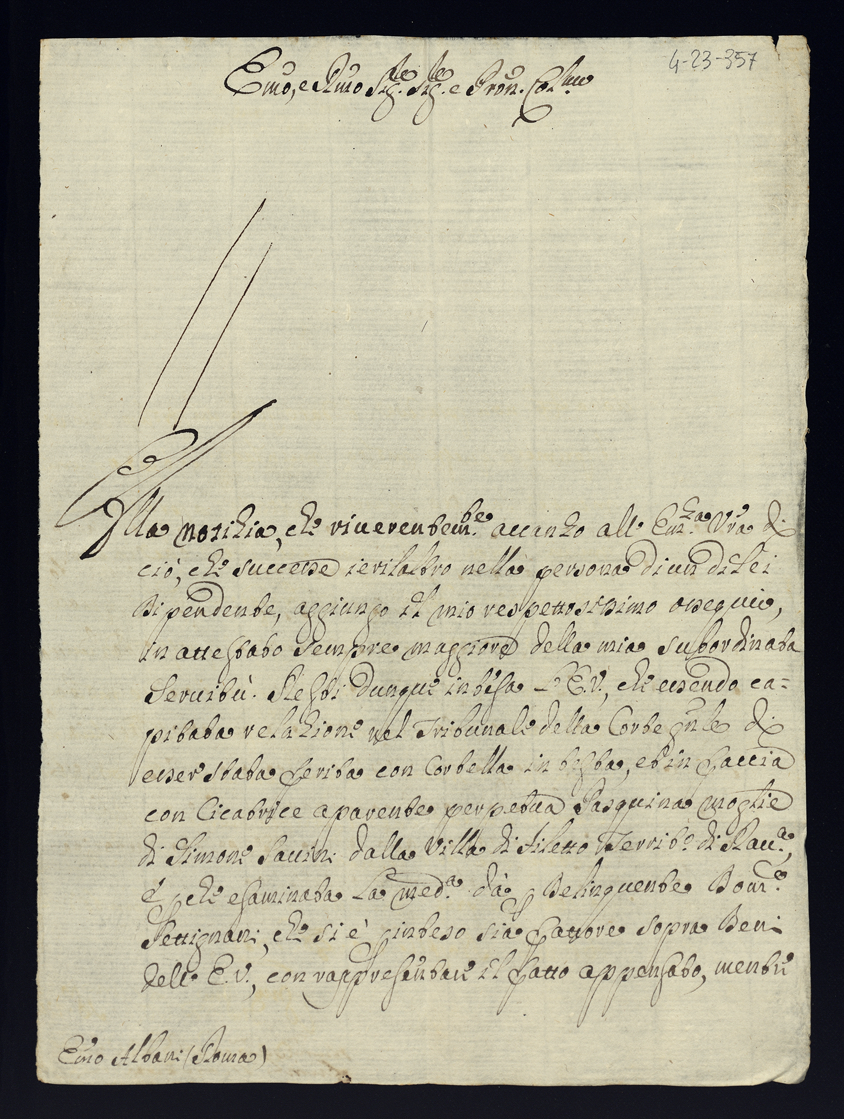 4-23-357
Emo, e Rmo Sig.re Sig.re e Pron. Col.mo
Alla notizia, che riverentem.te avanzo all' Em.za Vra di
ciò, che successe ierilaltro nella persona di un di Lei
dipendente, aggiungo il mio respettosissimo ossequio,
in attestato sempre maggiore della mia subordinata
Servitù. Resti dunque intesa l' E.V., che essendo ca=
pitata relazione nel Tribunale della Corte
esser stata ferita con Cortella in testa, et in faccia
con Cicatrice aparente perpetua Pasquina moglie
di Simone Saccini dalla Villa di Filetto Territ.o di
e che esaminata la med.a dà Delinquente Dom.o
Settignani, che si è inteso sia fattore sopra Beni
dell' E.V., con rappresentare il fatto appensato, mentre
Emo Albani (Roma)